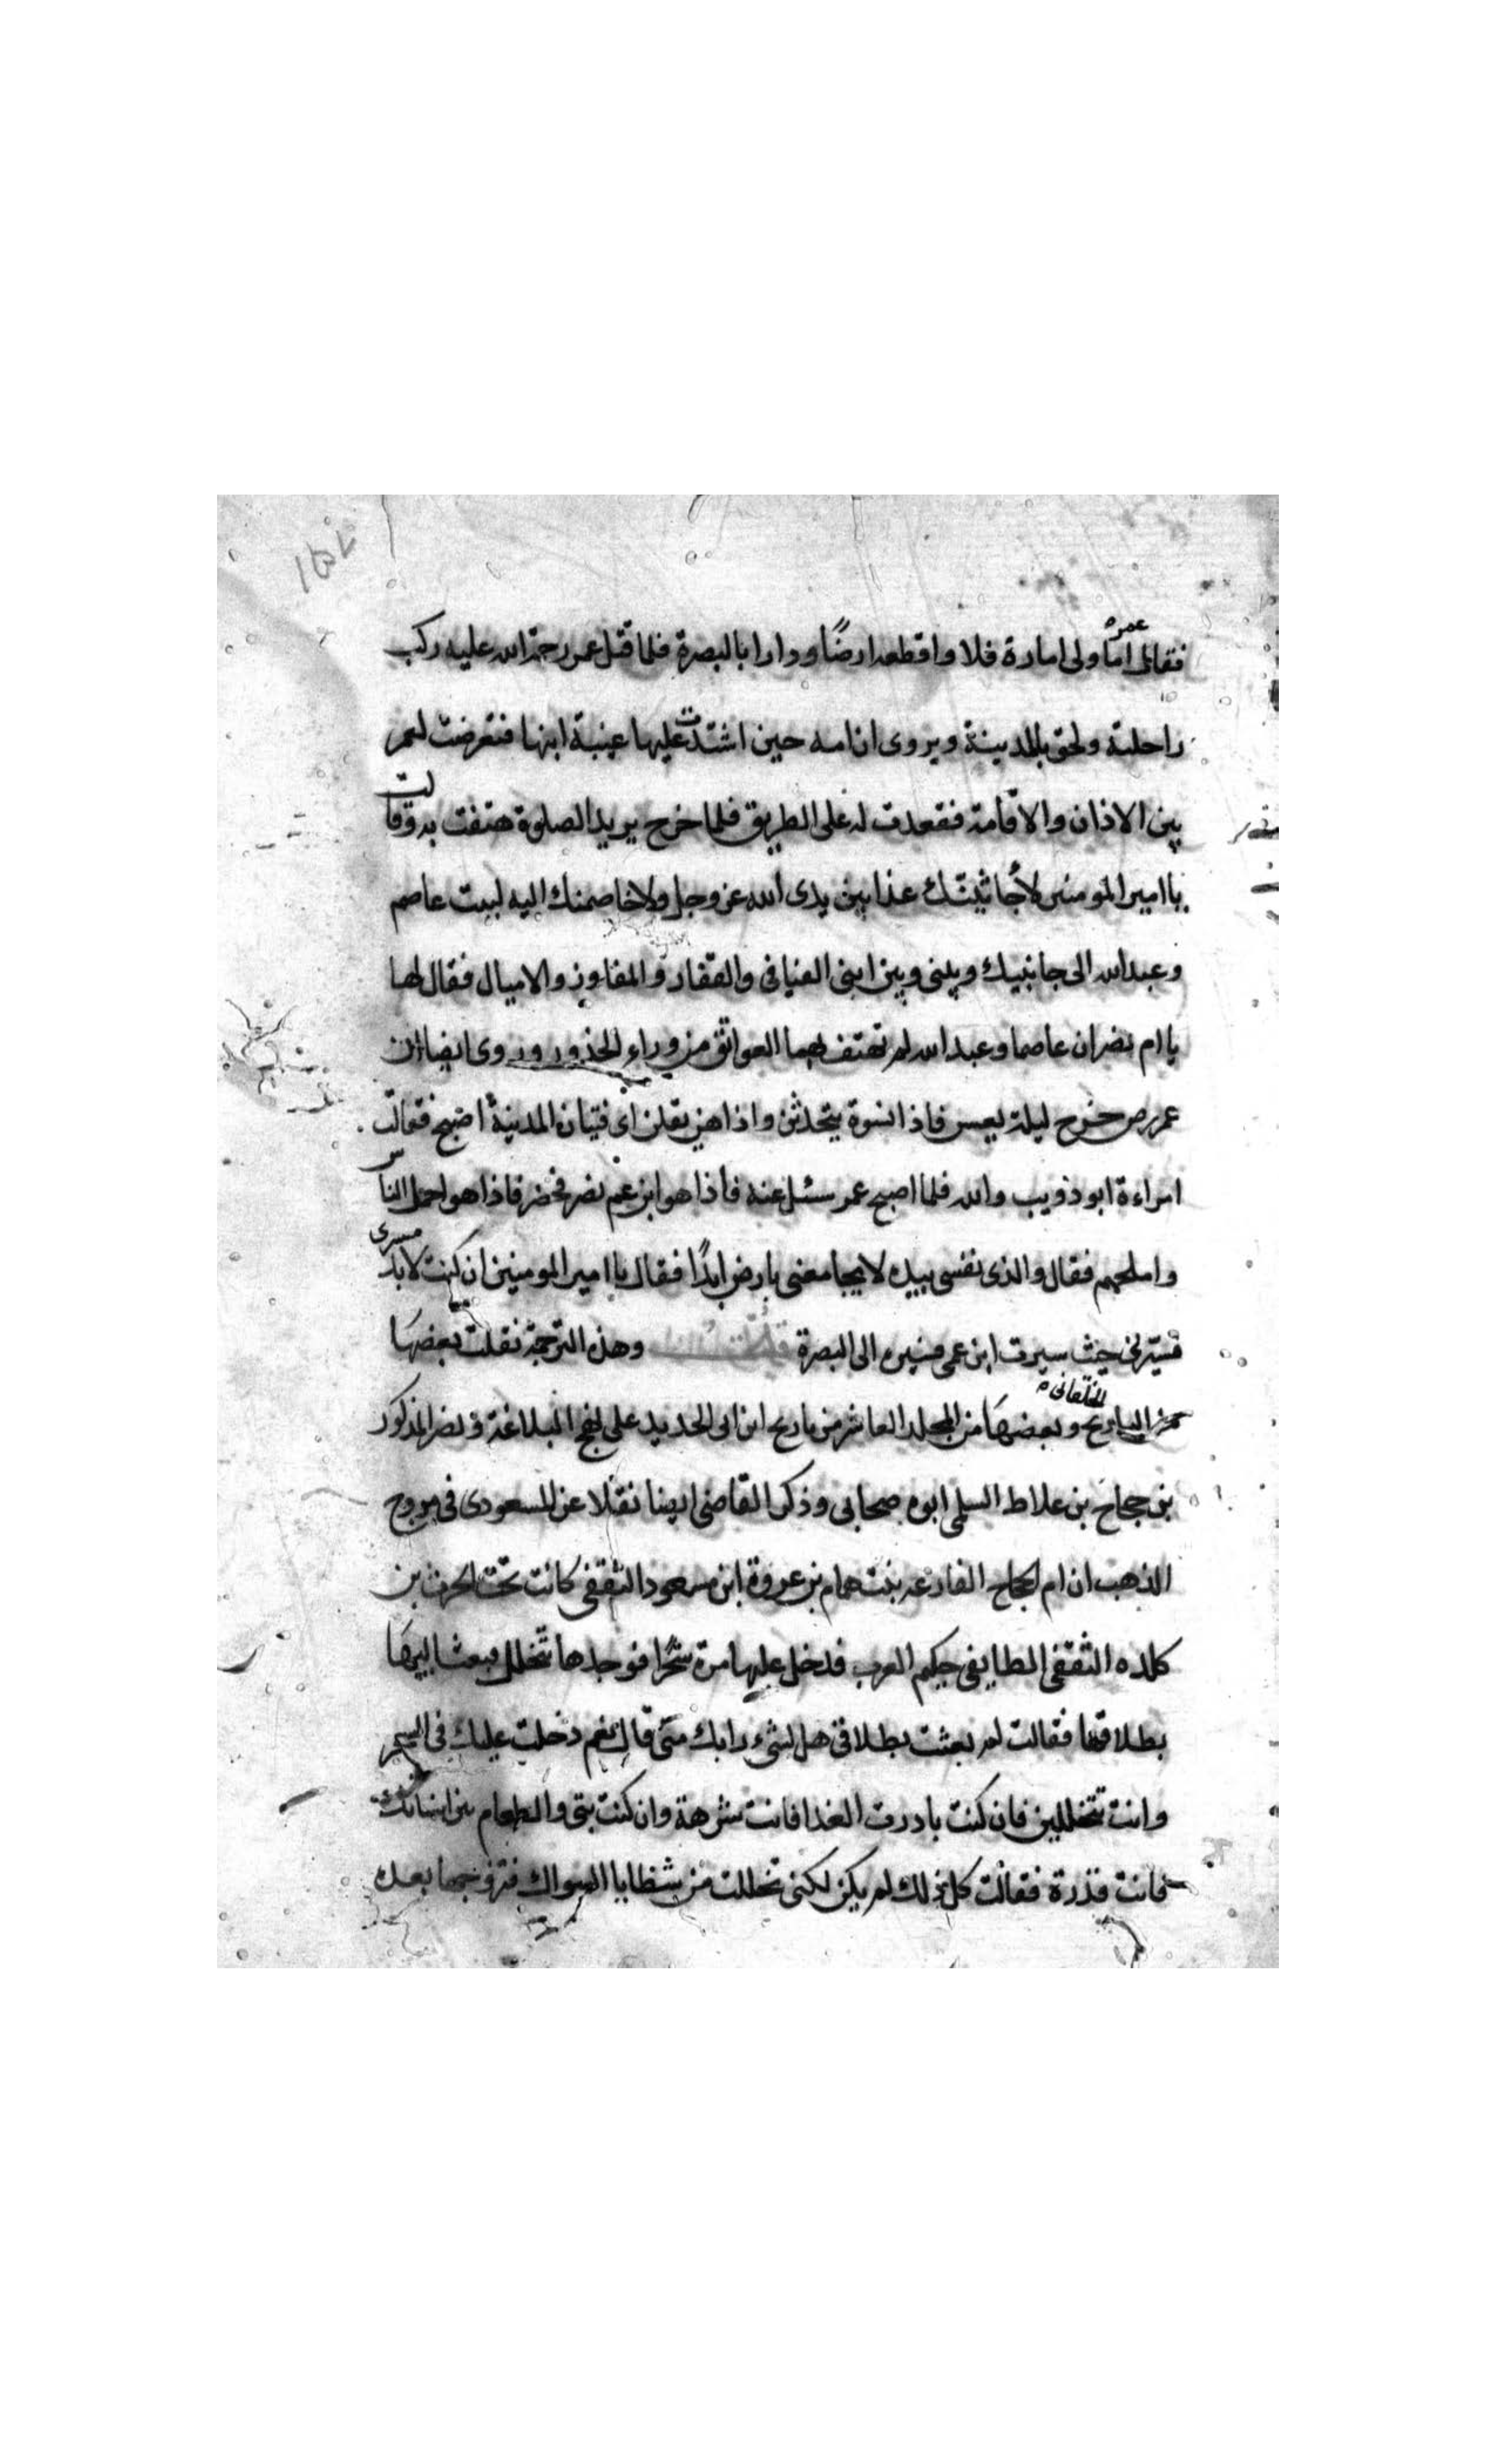 فقال عمر اما ولى امارة فلا واقطعه ارضًا ودارا بالبصرة فلما قتل عمر رحمة الله عليه ركب
راحلته ولحق بالمدينة ويروى ان امه حين اشتدت عليها غيبة ابنها فتعرضت لعمر
بين الاذان والاقامة فقعدت له على الطريق فلما خرج يريد الصلوة هتفت به وقالت
يا امير المومنين لأجاثينك غدا بين يدى الله عز وجل ولاخاصمنك اليه لبيت عاصم
وعبد الله الى جانبيك وبينى وبين ابنى الفيافى والقفار والمفاوز والاميال فقال لها
يا ام نصر ان عاصما وعبد الله لم تهتف بهما العواتق من وراء الخدور وروى ايضا ان
عمر رض خرج ليلة يعس فاذا نسوة يتحدثن واذا هن يقلن اى فتيان المدينة اصبح فقالت
امراءة ابو ذويب والله فلما اصبح عمر سئل عنه فاذا هو ابن عم نصر فحضر فاذا هو اجمل الناس
واملحهم فقال والذى نفسى بيده لا يجامعنى بارض ابدًا فقال يا امير المومنين ان كنت لابد مسيرى
فسيّرنى حيث سيرت ابن عمى فسيره الى البصرة وهذه الترجمة نقلت بعضها
من التاريخ وبعضها من المجلد العاشر من تاريخ ابن ابى الحديد على نهج البلاغة ونصر المذكور
بن حجاج بن علاط السلمى ابوه صحابى وذكر القاضى ايضا نقلا عن المسعودى فى مروج
الذهب ان ام الحجاج الفارعه بنت همام بن عروة ابن مسعود الثقفى كانت تحت الحرث بن
كلده الثقفى الطايفى حكيم العرب فدخل عليها مرة سحرًا فوجدها تتخلل فبعث اليها
بطلاقها فقالت لم بعثت بطلاقى هل لشىء رابك منى قال نعم دخلت عليك فى السحر
وانت تتخللين فان كنت بادرت الغدا فانت شرهة وان كنت بتى والطعام بين اسنانك
فانت قذرة فقالت كل ذلك لم يكن لكنى تخللت من شظايا السواك فتزوجها بعده